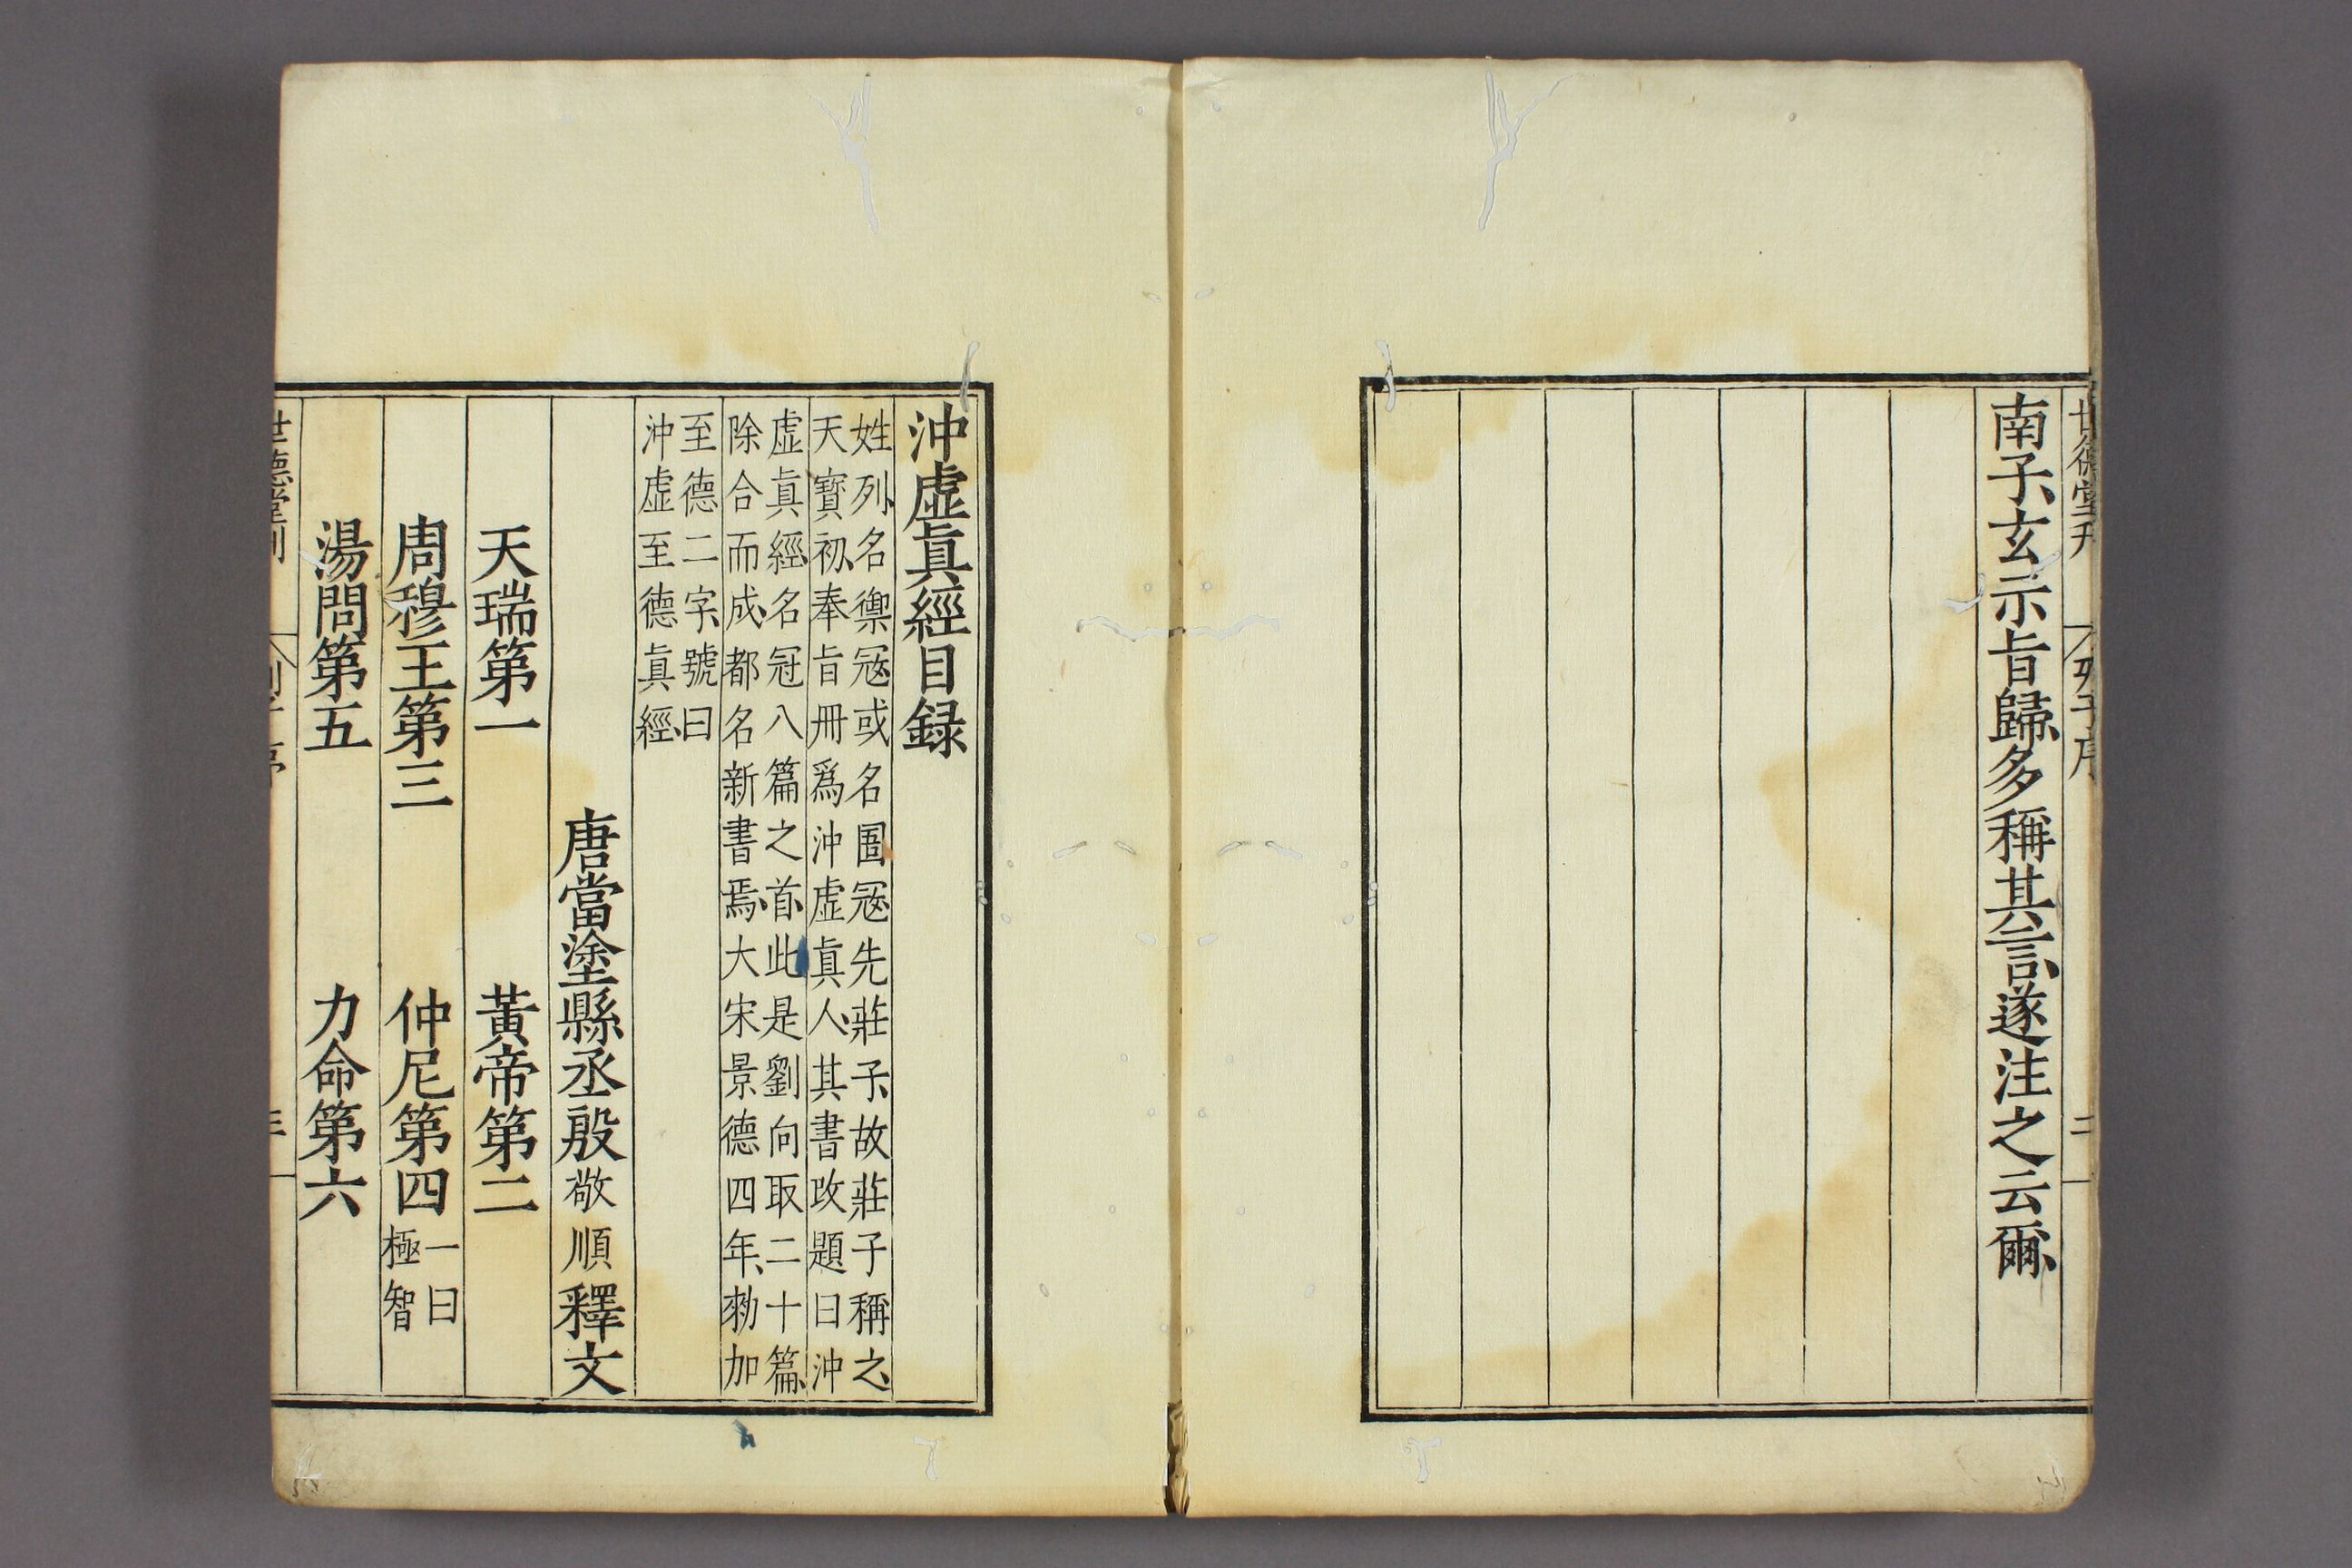 世德堂刊
列子序
二
南子玄示旨歸多稱其言遂注之云爾
沖虛眞經目録
姓列名禦寇或名圄寇先莊子故莊子稱之
天寶初奉旨冊爲沖虛眞人其書改題曰沖
虛眞經名冠八篇之首此是劉向取二十篇
除合而成都名新書焉大宋景德四年勑加
至德二字號曰
沖虛至德眞經
唐當塗縣丞殷敬順釋文
天瑞第一 黃帝第二
周穆王第三 仲尼第四一曰極智
湯問第五 力命第六
世德堂刊